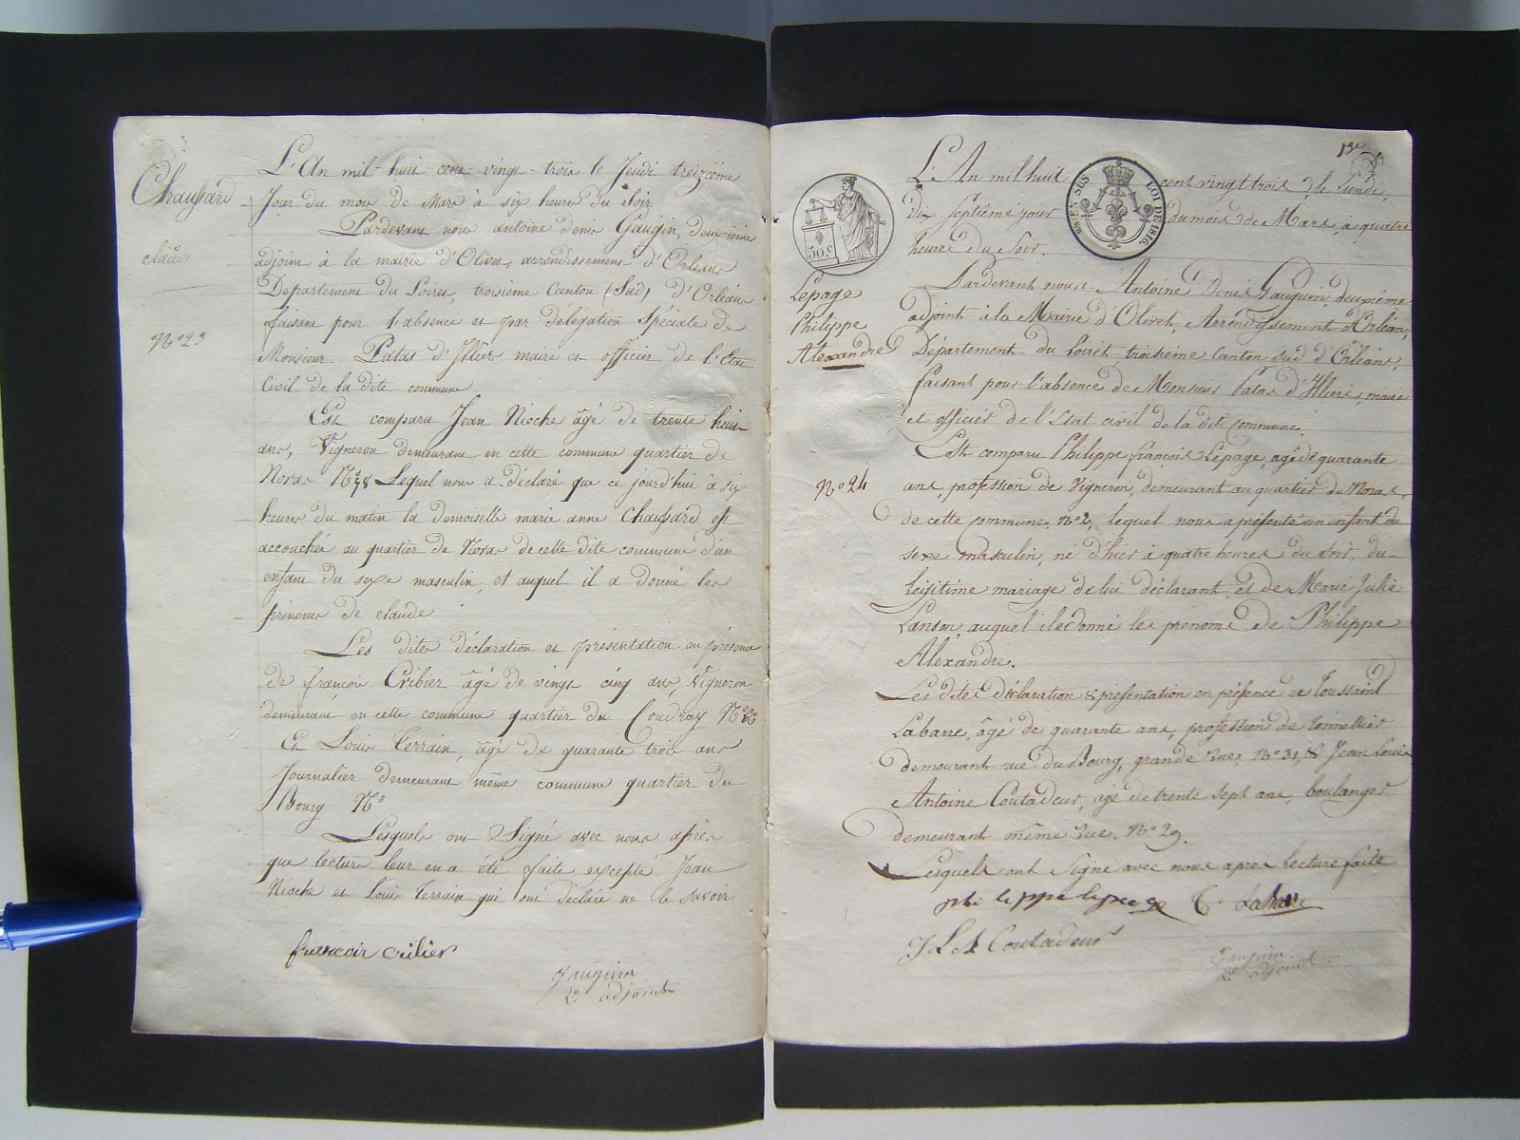 Chaussard
claude
N° 23
L'An mil huit cent vingt-trois le Jeudi treizième
Jour du mois de Mars à six heures du Soir
Pardevant nous antoine denis Gaugin, deuxième
adjoint à la mairie d'Olivet, arrondissement d'Orléans
Département du Loiret, troisième Canton (Sud) d'Orléans
faisant pour l'absence et par délégation Spéciale de
Monsieur Patas d'Illiers maire et officier de l'Etat
Civil de la dite commune
Est comparu Jean Nioche âgé de trente huit
ans, Vigneron demeurant en cette commune quartier de
Noras N° 78 Lequel nous a déclaré que ce jourd'hui à six
heures du matin la demoiselle marie anne Chaussard est
accouchée au quartier de Noras de cette dite commune d'un
enfant du sexe masculin, et auquel il a donné les
prénoms de claude
Les dites déclaration et présentation en présence
de françois Cribier âgé de vingt cinq ans, Vigneron
demeurant en cette commune quartier du Coudray N°
Et Louis Terrain, âgé de quarante trois ans
Journalier demeurant même commune quartier du
Bourg N°
Lesquels ont Signé avec nous après
que lecture leur en a été faite excepté Jean
Nioche et Louis Terrain qui ont déclaré ne le savoir
francoir crilier
Gauguin
2e adjoint
L'An mil huit cent vingt trois, le lundi,
dix septième jour du mois de Mars, à quatre
heures du Soir.
50 c
LOI DE 1816
Lepage
Philippe
Alexandre
N° 24
Pardevant nous Antoine Denis Gauguin, deuxième
adjoint à la Mairie d'Olivet, Arrondissement d'Orléans,
Département du Loiret, troisième Canton sud d'Orléans,
faisant pour l'absence de Monsieur Patas d'Illiers, maire
et officier de l'Etat civil de la dite commune.
Est comparu Philippe françois Lepage, agé de quarante
ans, profession de Vigneron, demeurant au quartier de Noras,
de cette commune, N° 2, lequel nous a présenté un enfant du
sexe masculin, né d'hier à quatre heures du soir, du
légitime mariage de lui déclarant, et de Marie Julie
Lanson, auquel il a donné les prénoms de Philippe
Alexandre.
Les dites déclaration & présentation en présence de Toussaint
Labarre, âgé de quarante ans, profession de tonnellier
demeurant rue du Bourg, grande Rue, N° 31, & Jean Louis
Antoine Coutadeur, âgé de trente sept ans, boulanger
demeurant même Rue, N° 29.
Lesquels ont Signé avec nous après lecture faite
phi lippe lepage T. Labarre
J L A Coutadeur
Gauguin
2e adjoint